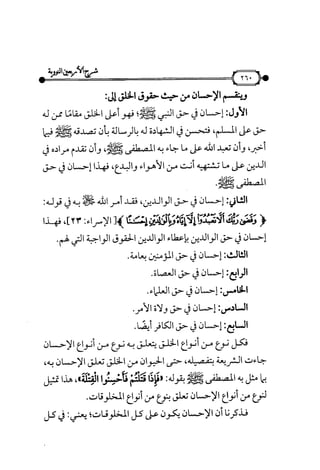 شرح الأربعين النووية
٢٦٠
وينقسم الإحسان من حيث حقوق الخلق إلى:
الأول: إحسان في حق النبي ﷺ؛ فهو أعلى الخلق مقامًا ممن له
حق على المسلم، فتحسن في الشهادة له بالرسالة بأن تصدقه ﷺ فيما
أخبر، وأن تعبد الله على ما جاء به المصطفى ﷺ، وأن تقدم مراده في
الدين على ما تشتهيه أنت من الأهواء والبدع، فهذا إحسان في حق
المصطفى ﷺ.
الثاني: إحسان في حق الوالدين، فقد أمر الله ﷻ به في قوله:
﴿ وَقَضَىٰ رَبُّكَ أَلَّا تَعْبُدُوٓا۟ إِلَّآ إِيَّاهُ وَبِٱلْوَٰلِدَيْنِ إِحْسَٰنًا ﴾[ الإسراء: ٢٣]، فهذا
إحسان في حق الوالدين بإعطاء الوالدين الحقوق الواجبة التي لهم.
الثالث: إحسان في حق المؤمنين بعامة.
الرابع: إحسان في حق العصاة.
الخامس: إحسان في حق العلماء.
السادس: إحسان في حق ولاة الأمر.
السابع: إحسان في حق الكافر أيضًا.
فكل نوع من أنواع الخلق يتعلق به نوع من أنواع الإحسان
جاءت الشريعة بتفصيله، حتى الحيوان من الخلق تعلق الإحسان به،
بما مثل به المصطفى ﷺ بقوله: «فَإِذَا قَتَلْتُمْ فَأَحْسِنُوا الْقِتْلَةَ»، هذا تمثيل
لنوع من أنواع الإحسان تعلق بنوع من أنواع المخلوقات.
فذكرنا أن الإحسان يكون على كل المخلوقات؛ يعني: في كل